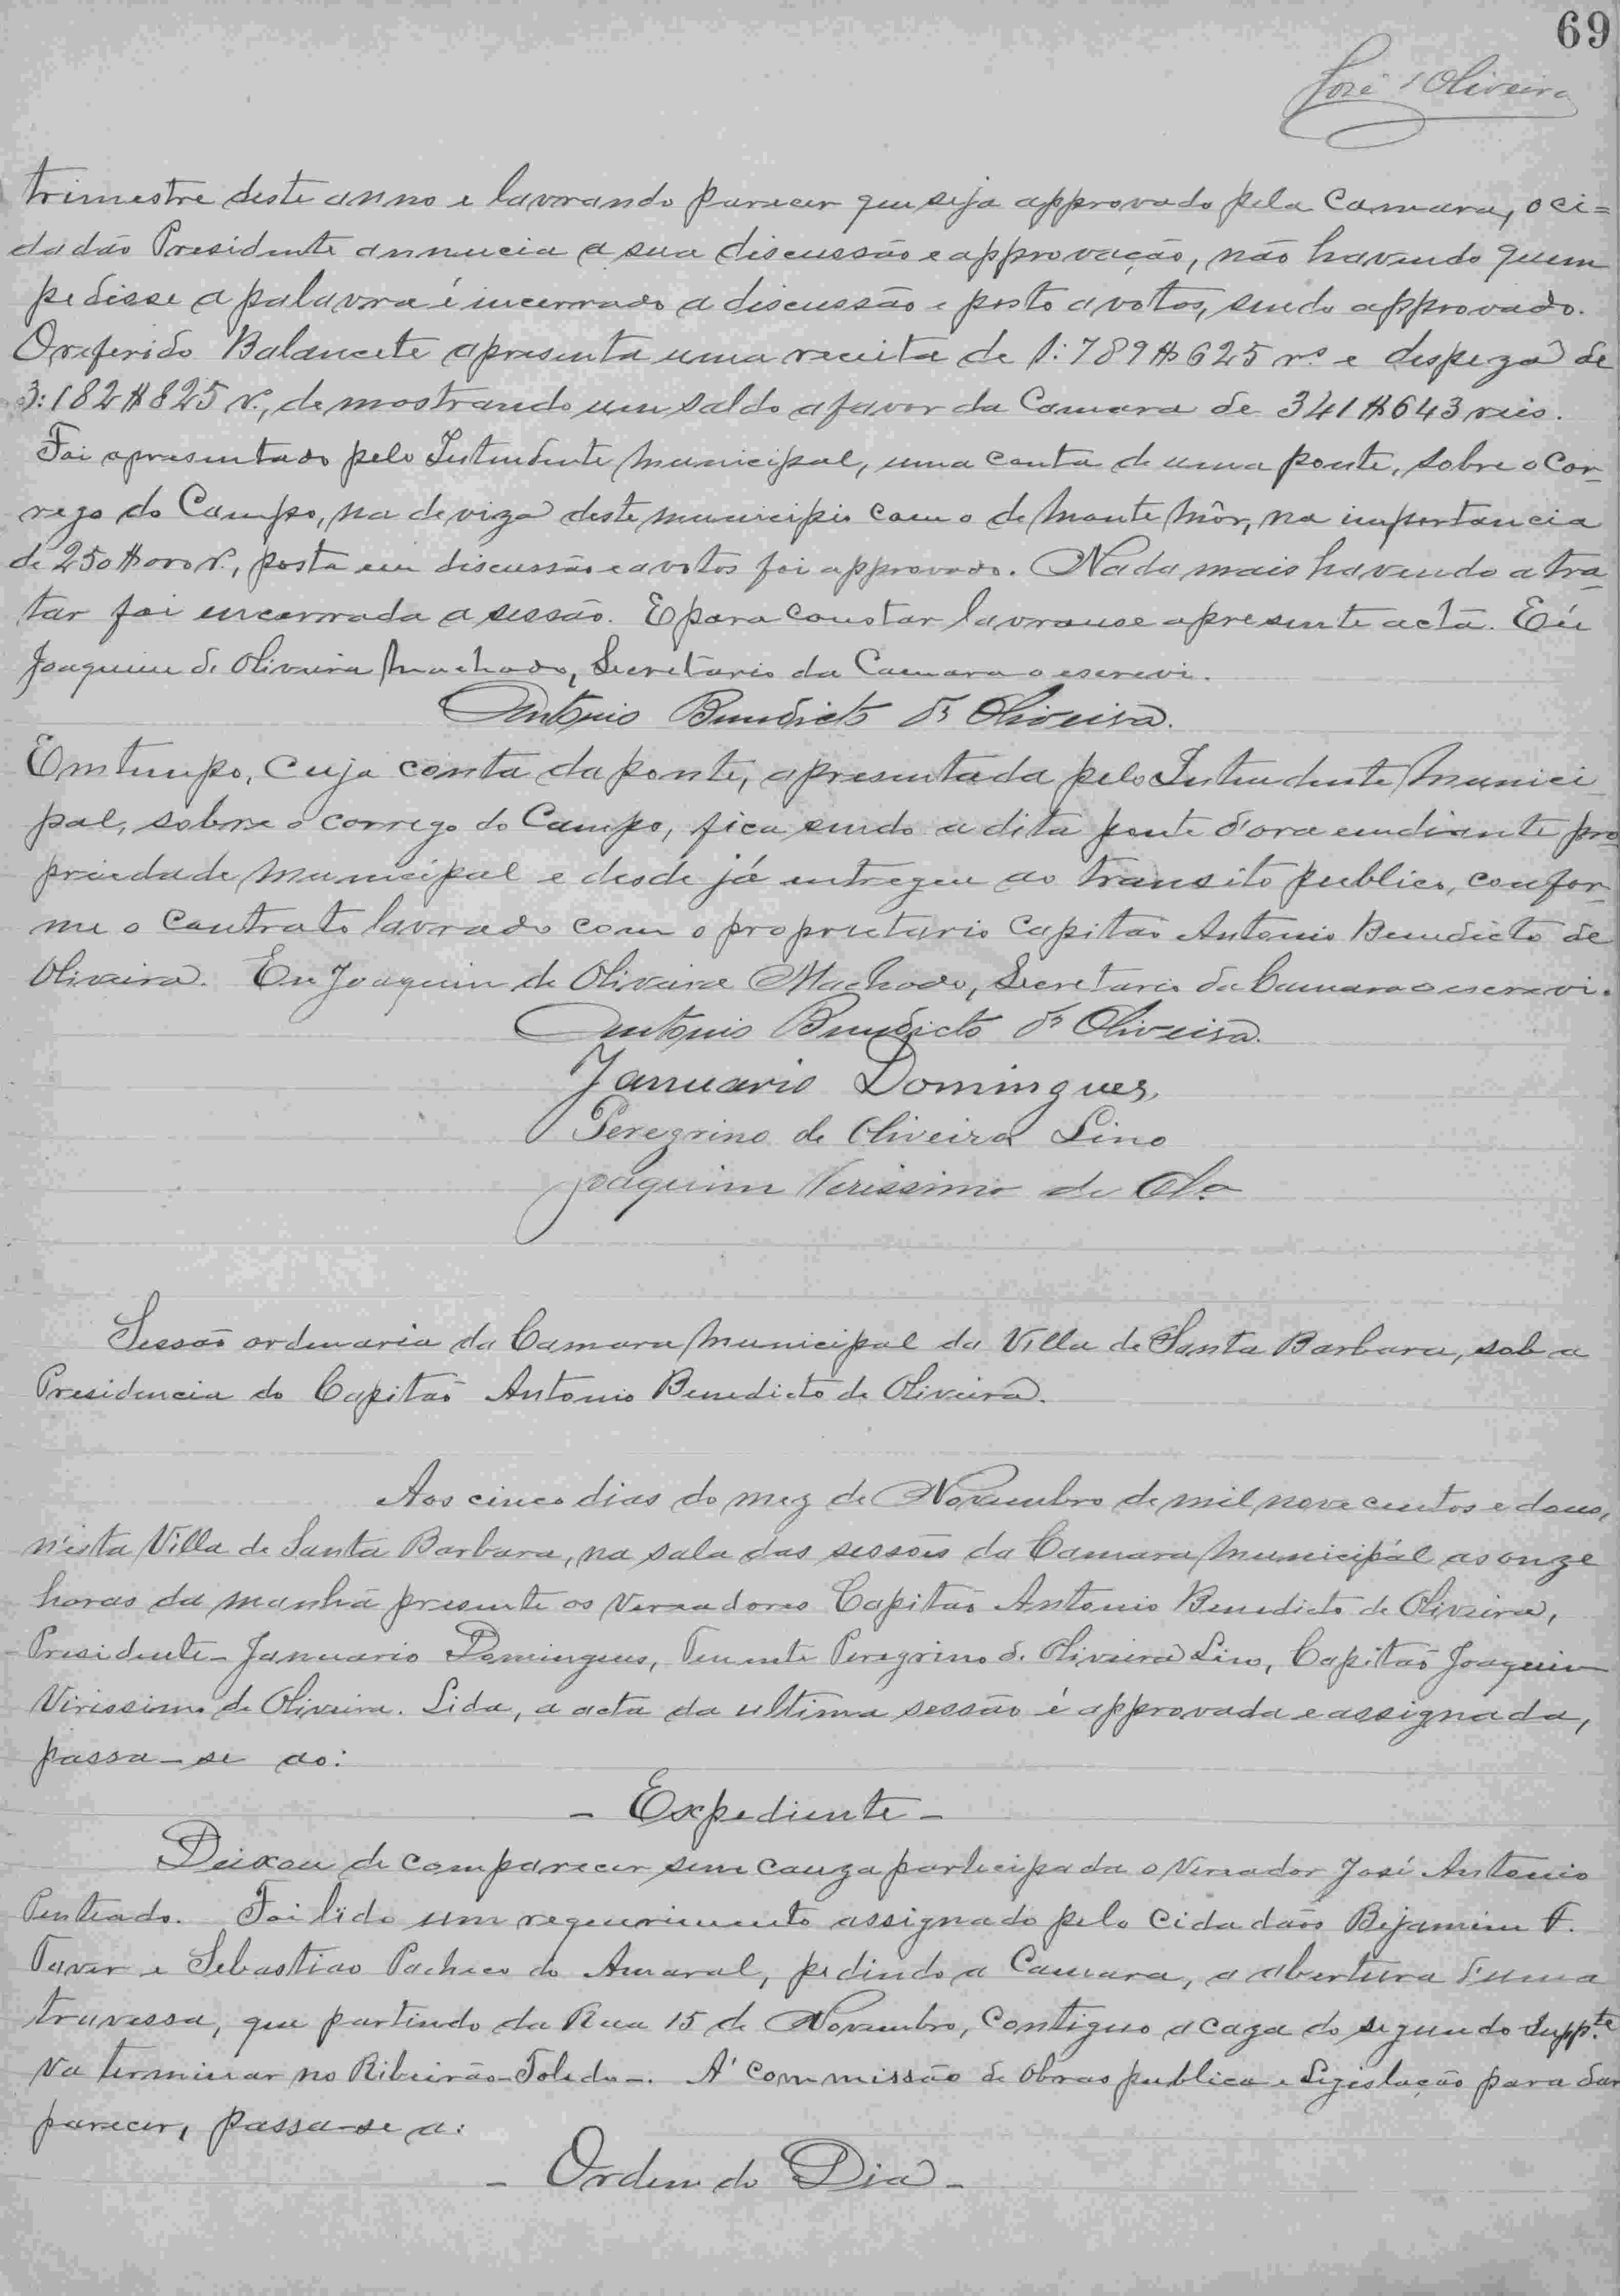 69
José d'Oliveira
trimestre deste anno e lavrando parecer que seja approvado pela Camara, o ci=
dadão Presidente annucia a sua discussão e approvação, não havendo quem
pedisse a palavra é incerrado a discussão e posto a votos, sendo approvado.
O referido Balancete apresenta uma receita de 1:789$625 rs e despeza de
3:182$825 r., demostrando um saldo a favor da Camara de 341$643 reis.
Foi apresentado pelo Intendente Municipal, uma conta de uma ponte, sobre o Cor-
rego do Campo, na deviza deste municipio com o de Monte Môr, na importancia
de 250$000 r., posta em discussão e a votos foi approvado. Nada mais havendo a tra-
tar foi encerrada a sessão. E para constar lavrouse a presente acta. Eu
Joaquim de Oliveira Machado, Secretario da Camara o escrevi.
Antonio Benedicto de Oliveira.
Em tempo, Cuja conta da ponte, apresentada pelo Intendente Munici-
pal, sobre o corrego do Campo, fica sendo a dita ponte d'ora em diante pro
priedade Municipal e desde já entregue ao transito publico, confor-
me o contrato lavrado com o proprietario Capitão Antonio Benedicto de
Oliveira. Eu Joaquim de Oliveira Machado, Secretario da Camara o escrevi.
Antonio Benedicto de Oliveira.
Januario Domingues,
Peregrino de Oliveira Lino
Joaquim Verissimo de Olo
Sessão ordenaria da Camara Municipal da Villa de Santa Barbara, sob a
Presidencia do Capitão Antonio Benedicto de Oliveira.
Aos cinco dias do mez de Novembro de mil nove centos e dous,
n'esta Villa de Santa Barbara, na sala das sessões da Camara Municipál as onze
horas da manhã presente os Vereadores Capitão Antonio Benedicto de Oliveira,
Presidente - Januario Domingues, Tenente Peregrino d. Oliveira Lino, Capitão Joaquim
Virissimo de Oliveira. Lida, a acta da ultima sessão é approvada e assignada,
passa-se ao:
- Expediente -
Deixou de comparecer sem cauza participada o Vereador José Antonio
Penteado. Foi lido um requerimento assignado pelo Cidadãos Bejamim F.
Taver e Sebastiao Pacheco do Amaral, pedindo a Camara, a abertura d'uma
travessa, que partindo da Rua 15 de Novembro, Contiguo a caza do segundo Supp.te
va terminar no Ribeirão-Toledo-. A' Commissão de Obras publica e Legislação para dar
parecer, passa-se a:
- Ordem do Dia -